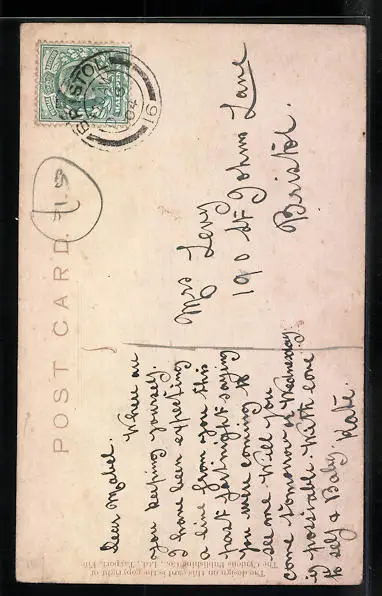 POST CARD.
BRISTOL
04
16
HALFPENNY
7/-9
Mrs Levy
190 St Johns Lane
Bristol.
Dear Mabel.
When are
you keeping yourself.
I have been expecting
a line from you this
past fortnight saying
you were coming to
see me. Will you
come tomorrow or Wednesday
if possible. With love
to self & Baby.
Kate.
The design on this card is the copyright of
The Cynicus Publishing Co., Ltd., Tayport, Fife